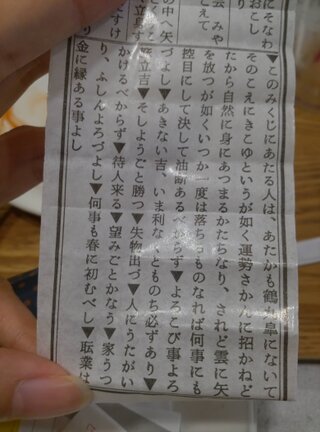 にそなわ
おこし
り
芸　みや
こえて
の中へ矢
く立身す
▼このみくじにあたる人は、あたかも鶴九皐にないて
そのこえにきこゆというが如く運勢さかんに招かねど
たから自然に身にあつまるかたちなり、されど雲に矢
を放つが如くいつか一度は落ちるものなれば何事にも
控目にして決して油断あるべからず▼よろこび事よろ
づよし▼あきない吉、いま利なくとものち必ずあり▼
旅立吉▼そしようごと勝つ▼失物出づ▼人にうたがい
かけるべからず▼待人来る▼望みごとかなう▼家うつ
り、ふしんよろづよし▼何事も春に初むべし▼職業は
金に縁ある事よし